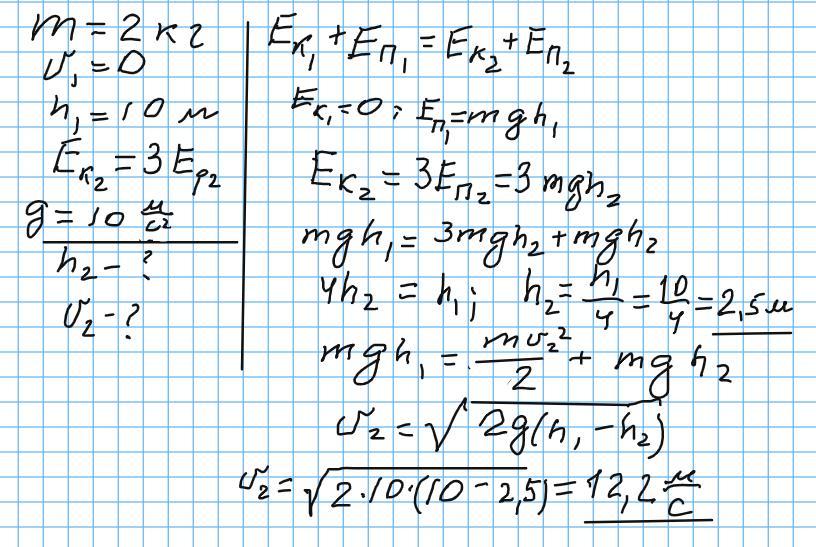 m = 2 кг
υ₁ = 0
h₁ = 10 м
Eк₂ = 3 Ep₂
g = 10 м/с²
h₂ - ?
υ₂ - ?
Eк₁ + Eп₁ = Eк₂ + Eп₂
Eк₁ = 0 ; Eп₁ = mgh₁
Eк₂ = 3Eп₂ = 3 mgh₂
mgh₁ = 3mgh₂ + mgh₂
4h₂ = h₁ ; h₂ = h₁/4 = 10/4 = 2,5 м
mgh₁ = mυ₂²/2 + mgh₂
υ₂ = √2g(h₁ - h₂)
υ₂ = √2·10·(10 - 2,5) = 12,2 м/с